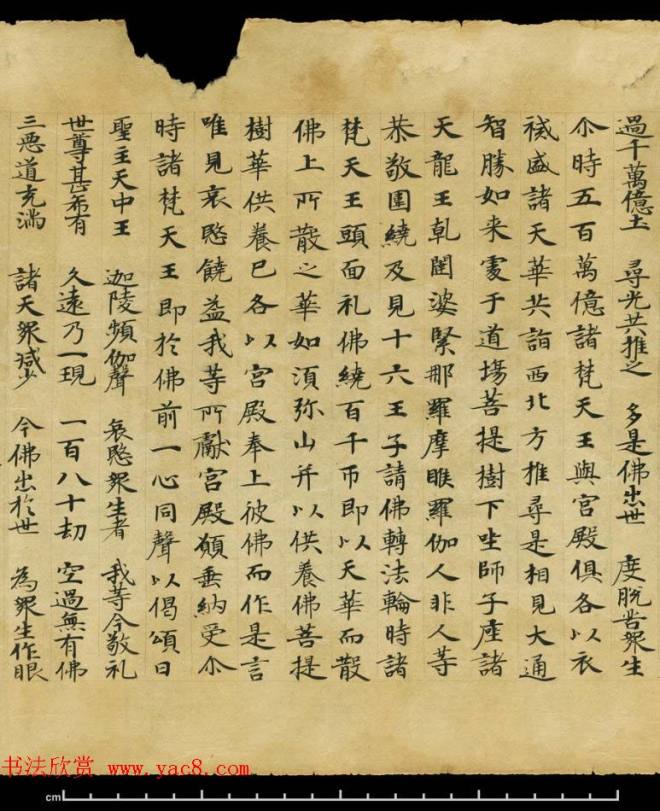 過千萬億土 尋光共推之 多是佛出世 度脫苦衆生
尒時五百萬億諸梵天王與宮殿俱各以衣
祴盛諸天華共詣西北方推尋是相見大通
智勝如来處于道場菩提樹下坐師子座諸
天龍王乹闥婆緊那羅摩睺羅伽人非人等
恭敬圍繞及見十六王子請佛轉法輪時諸
梵天王頭面礼佛繞百千帀即以天華而散
佛上所散之華如湏弥山并以供養佛菩提
樹華供養已各以宮殿奉上彼佛而作是言
唯見哀愍饒益我等所獻宮殿願垂納受尒
時諸梵天王即於佛前一心同聲以偈頌曰
聖主天中王 迦陵頻伽聲 哀愍衆生者 我等今敬礼
世尊甚希有 久遠乃一現 一百八十劫 空過無有佛
三惡道充滿 諸天衆減少 今佛出於世 為衆生作眼
书法欣赏 www.yac8.com
cm